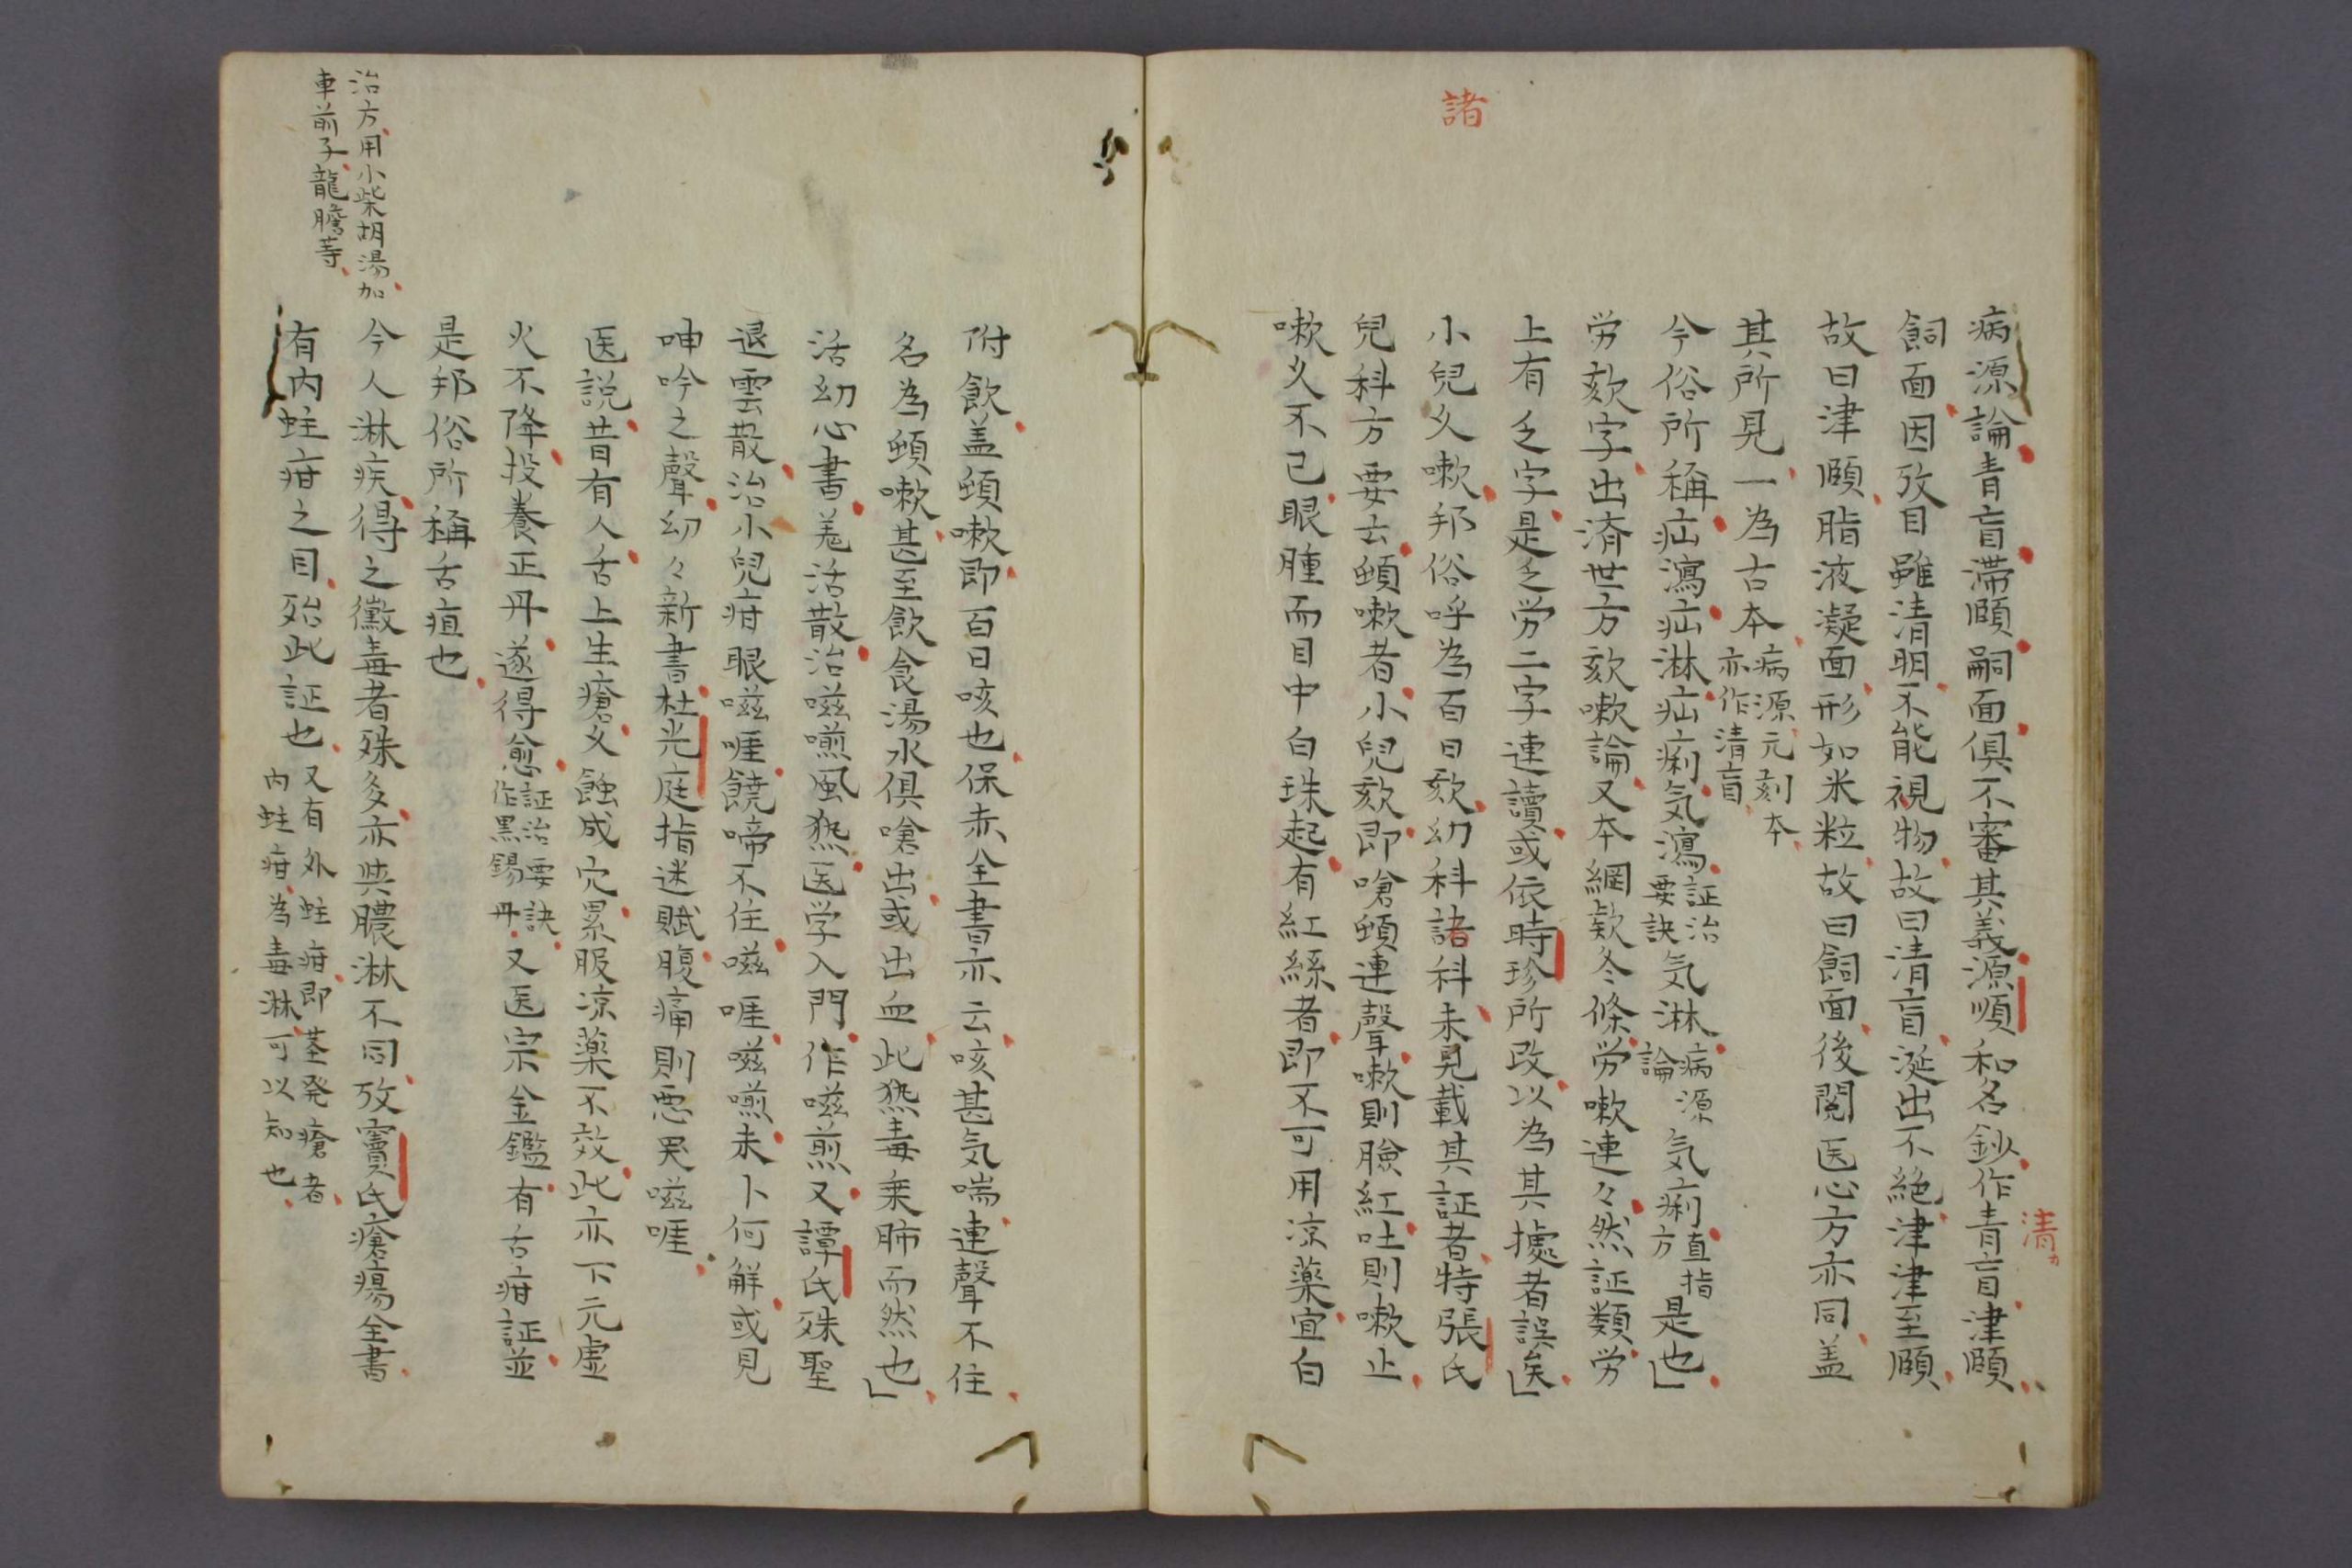 諸
病源論青盲滞頤嗣面俱不審其義源順和名鈔作青盲津頤
清カ
飼面因攷目雖清明不能視物故曰清盲涎出不絶津津至頤
故曰津頤脂液凝面形如米粒故曰飼面後閲医心方亦同盖
其所見一為古本病源元刻本亦作清盲
今俗所稱疝瀉疝淋疝痢気瀉証治要訣気淋病源論気痢直指方是也」
労欬字出済世方欬嗽論又本綱欵冬條労嗽連々然証類労
上有乏字是乏労二字連讀或依時珍所改以為其據者誤矣」
小兒久嗽邦俗呼為百日欬幼科諸科未見載其証者特張氏
兒科方要云頓嗽者小兒欬即嗆頓連聲嗽則臉紅吐則嗽止
嗽久不已眼腫而目中白珠起有紅絲者即不可用凉薬宜白
附飲盖頓嗽即百日咳也保赤全書亦云咳甚気喘連聲不住
名為頓嗽甚至飲食湯水俱嗆出或出血此熱毒乗肺而然也」
活幼心書羗活散治嗞㗜風熱医学入門作嗞煎又譚氏殊聖
退雲散治小兒疳眼嗞啀饒啼不住嗞啀嗞㗜未卜何解或見
呻吟之聲幼々新書杜光庭指迷賦腹痛則悪哭嗞啀
医説昔有人舌上生瘡久蝕成穴累服凉薬不效此亦下元虚
火不降投養正丹遂得愈証治要訣作黒錫丹又医宗金鑑有舌疳証並
是邦俗所稱舌疽也
今人淋疾得之黴毒者殊多亦與膿淋不同攷竇氏瘡瘍全書
有内蛀疳之目殆此証也又有外蛀疳即茎発瘡者内蛀疳為毒淋可以知也
治方用小柴胡湯加
車前子龍膽等